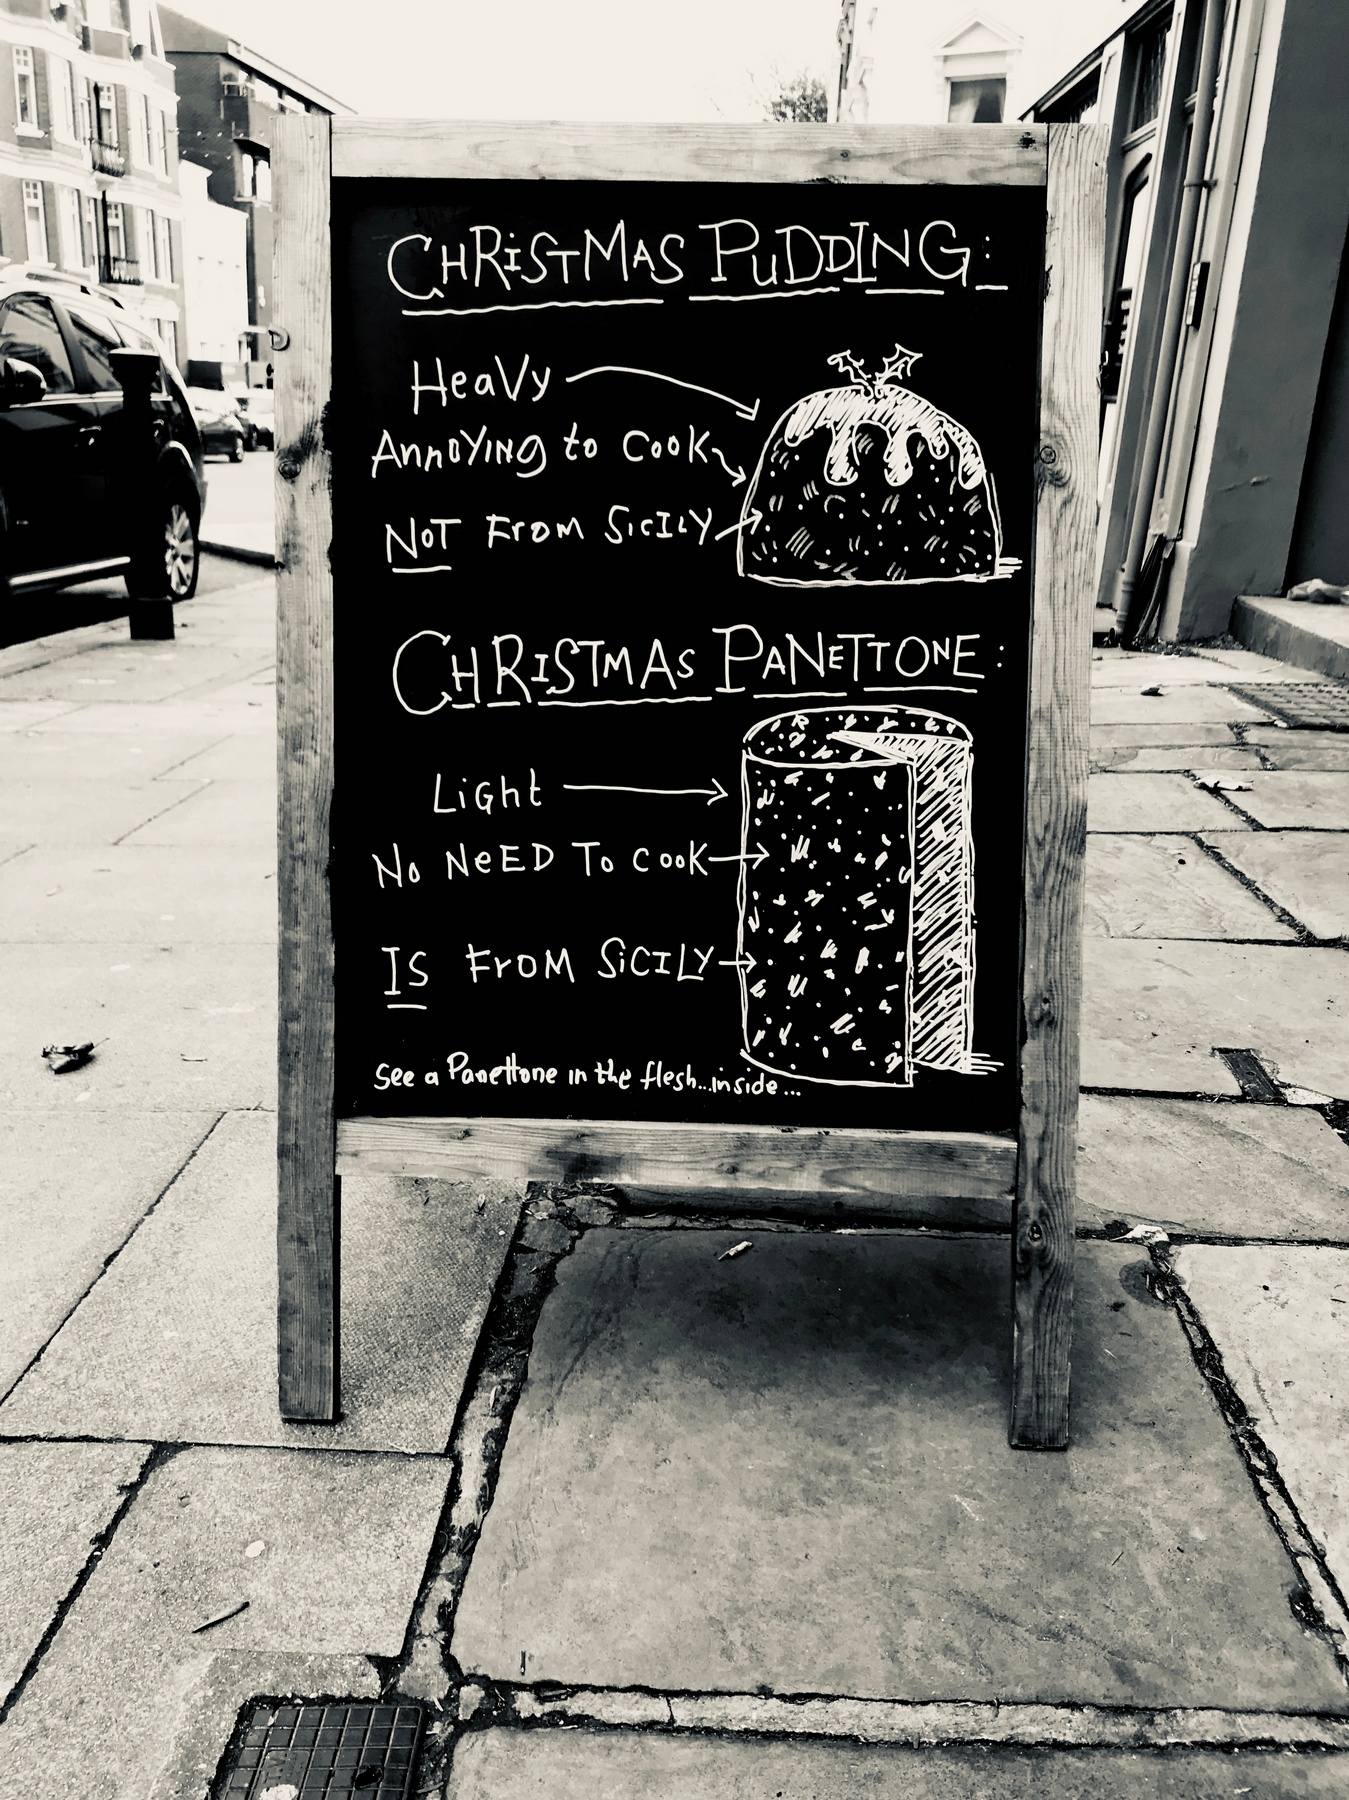 CHRiSTMAS PuDDING:
HeaVy
AnnoYING to cooK
NOT FroM SiciLY
CHRISTMAS PANeTTONE:
LiGht
No NeED To cooK
IS FroM SiCILY
See a Panettone in the flesh...inside...